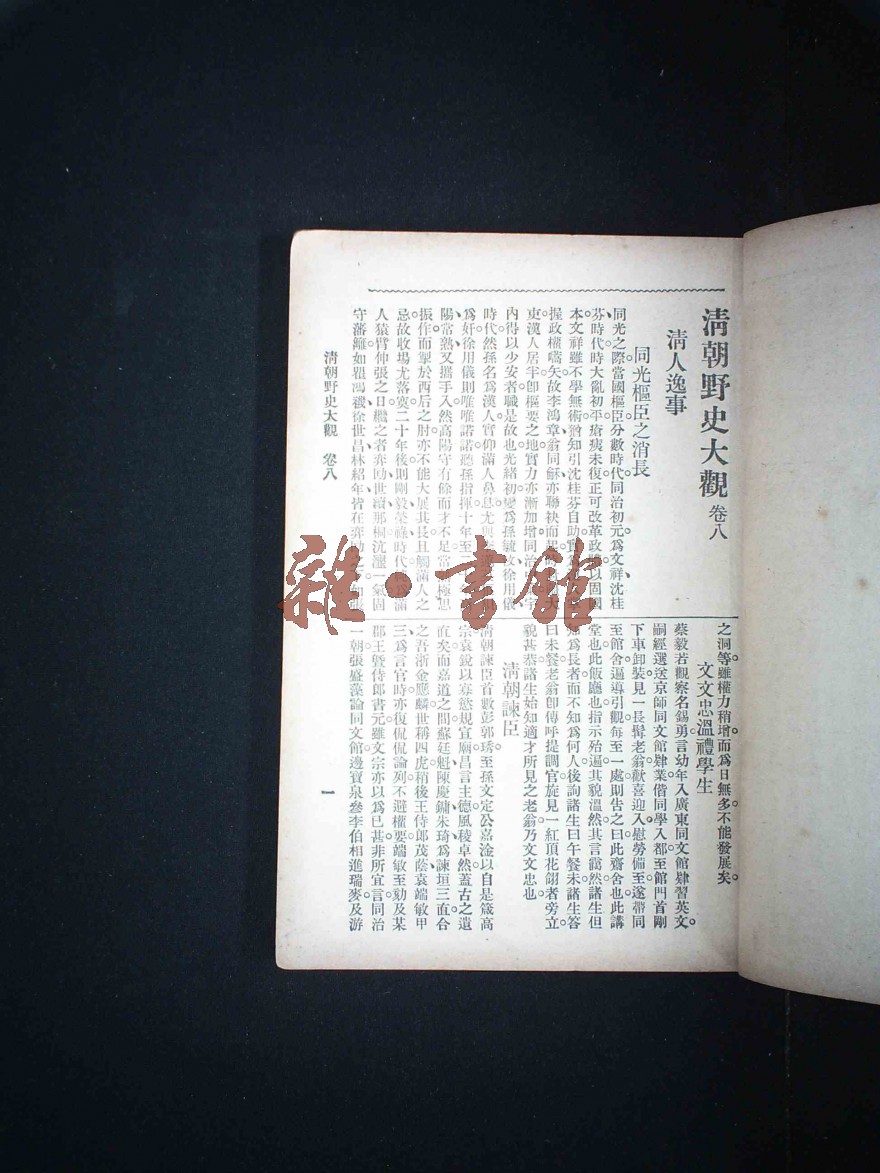 清朝野史大觀 卷八
清人逸事
同光樞臣之消長
同光之際當國樞臣分數時代同治初元爲文祥沈桂
芬時代時大亂初平瘡痍未復正可改革政以固國
本文祥雖不學無術猶知引沈桂芬自助
握政權嚆矢故李鴻章翁同龢亦聯袂而起大
吏漢人居半卽樞要之地實力亦漸加增同治
內得以少安者職是故也光緒初變爲孫毓汶徐用儀
時代然孫名爲漢人實仰滿人鼻息尤
爲奸徐用儀則唯唯諾諾聽孫指揮十年至
陽常熟又攜手入然高陽守有餘而才不足極思
振作而掣於西后之肘亦不能大展其長且觸滿人之
忌故收場尤落寞二十年後則剛毅榮祿時代爲滿
人猿臂伸張之日繼之者奕劻世續那桐沆瀣一氣固
守藩籬如瞿鴻禨徐世昌林紹年皆在奕劻
之洞等雖權力稍增而爲日無多不能發展矣
文文忠溫禮學生
蔡毅若觀察名錫勇言幼年入廣東同文館肄習英文
嗣經選送京師同文館肄業偕同學入都至館門首剛
下車卸裝見一長髯老翁歡喜迎入慰勞備至遂帶同
至館舍遍導引觀每至一處則告之曰此齋舍也此講
堂也此飯廳也指示殆遍其貌溫然其言藹然諸生但
知爲長者而不知爲何人後詢諸生曰午餐未諸生答
曰未餐老翁卽傳呼提調官旋見一紅頂花翎者旁立
貌甚恭諸生始知適才所見之老翁乃文文忠也
清朝諫臣
清朝諫臣首數彭郭琇至孫文定公嘉淦以自是箴高
宗袁銳以寡慾規宣廟昌言主德風稜卓然蓋古之遺
直矣而嘉道之間蘇廷魁陳慶鏞朱琦爲諫垣三直合
之吾浙金應麟世稱四虎稍後王侍郎茂蔭袁端敏甲
三爲言官時亦復侃侃論列不避權要端敏至劾及某
郡王暨侍郎書元雖文宗亦以爲已甚非所宜言同治
一朝張盛藻論同文館邊寶泉參李伯相進瑞麥及游
清朝野史大觀 卷八
一
雜·書館